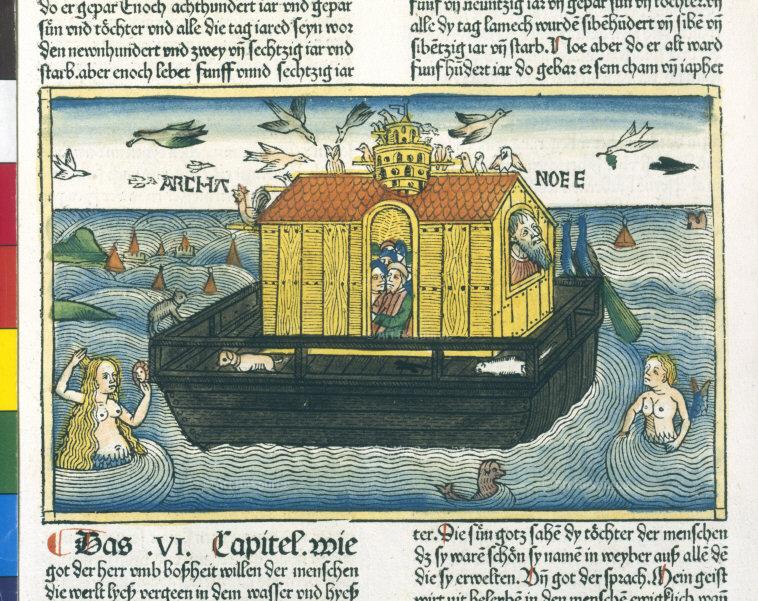 do er gepar Enoch achthundert iar vnd gepar
sün vnd töchter vnd alle die tag iared seyn wor
den newnhundert vnd zwey vñ sechtzig iar vnd
starb. aber enoch lebet funff vnnd sechtzig iar
funff vñ neuntzig iar vñ gepar sun vñ töchter. vñ
alle dy tag lamech wurdē sibēhūdert vñ sibē vñ
sibētzig iar vñ starb. Noe aber do er alt ward
funfhūdert iar do gebar er sem cham vñ iaphet
ARCHA NOEE
Das .VI. Capitel. wie
got der herr vmb boßheit willen der menschen
die werlt hyeß vergeen in dem wasser vnd hyeß
ter. Die sün gotz sahē dy töchter der menschen
dz sy warē schön sy namē in weyber auß allē dē
die sy erwelten. Vñ got der sprach. Mein geist
wirt nit beleybē in den menschē ewigklich wañ